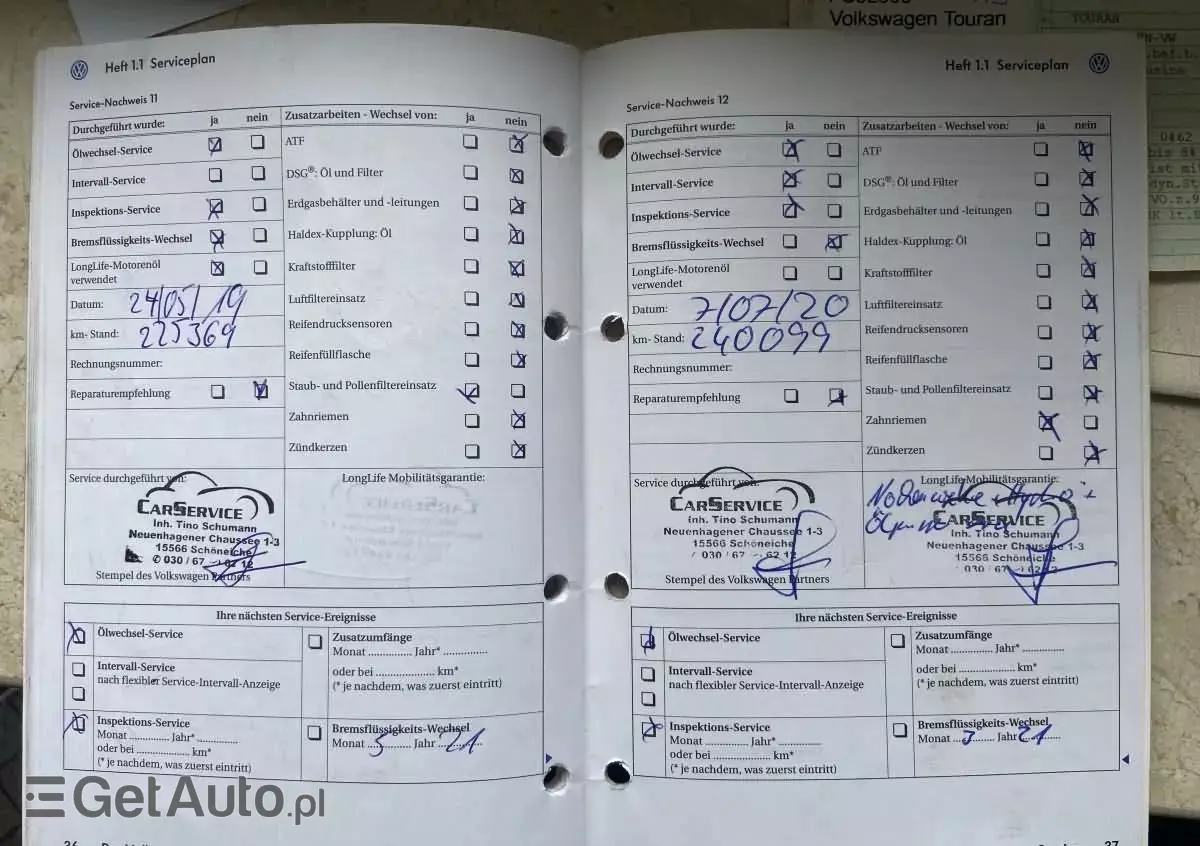 Volkswagen Touran
TOURAN
Heft 1.1 Serviceplan
Service-Nachweis 11
Durchgeführt wurde: ja nein
Ölwechsel-Service
Intervall-Service
Inspektions-Service
Bremsflüssigkeits-Wechsel
LongLife-Motorenöl
verwendet
Datum: 24/05/19
km- Stand: 225369
Rechnungsnummer:
Reparaturempfehlung
Zusatzarbeiten - Wechsel von: ja nein
ATF
DSG®: Öl und Filter
Erdgasbehälter und -leitungen
Haldex-Kupplung: Öl
Kraftstofffilter
Luftfiltereinsatz
Reifendrucksensoren
Reifenfüllflasche
Staub- und Pollenfiltereinsatz
Zahnriemen
Zündkerzen
Service durchgeführt von:
CARSERVICE
Inh. Tino Schumann
Neuenhagener Chaussee 1-3
15566 Schöneiche
✆ 030 / 67 62 12
Stempel des Volkswagen Partners
LongLife Mobilitätsgarantie:
Ihre nächsten Service-Ereignisse
Ölwechsel-Service
Intervall-Service
nach flexibler Service-Intervall-Anzeige
Inspektions-Service
Monat .............. Jahr* ..............
oder bei .................... km*
(* je nachdem, was zuerst eintritt)
Zusatzumfänge
Monat .............. Jahr* ..............
oder bei .................... km*
(* je nachdem, was zuerst eintritt)
Bremsflüssigkeits-Wechsel
Monat 5 Jahr 21
Heft 1.1 Serviceplan
Service-Nachweis 12
Durchgeführt wurde: ja nein
Ölwechsel-Service
Intervall-Service
Inspektions-Service
Bremsflüssigkeits-Wechsel
LongLife-Motorenöl
verwendet
Datum: 7/07/20
km- Stand: 240099
Rechnungsnummer:
Reparaturempfehlung
Zusatzarbeiten - Wechsel von: ja nein
ATF
DSG®: Öl und Filter
Erdgasbehälter und -leitungen
Haldex-Kupplung: Öl
Kraftstofffilter
Luftfiltereinsatz
Reifendrucksensoren
Reifenfüllflasche
Staub- und Pollenfiltereinsatz
Zahnriemen
Zündkerzen
Service durchgeführt von:
CARSERVICE
Inh. Tino Schumann
Neuenhagener Chaussee 1-3
15566 Schöneiche
030 / 67 62 12
Stempel des Volkswagen Partners
LongLife Mobilitätsgarantie:
CARSERVICE
Inh. Tino Schumann
Neuenhagener Chaussee 1-3
15566 Schöneiche
030 / 67 62 12
Ihre nächsten Service-Ereignisse
Ölwechsel-Service
Intervall-Service
nach flexibler Service-Intervall-Anzeige
Inspektions-Service
Monat .............. Jahr* ..............
oder bei .................... km*
(* je nachdem, was zuerst eintritt)
Zusatzumfänge
Monat .............. Jahr* ..............
oder bei .................... km*
(* je nachdem, was zuerst eintritt)
Bremsflüssigkeits-Wechsel
Monat Jahr 21
GetAuto.pl